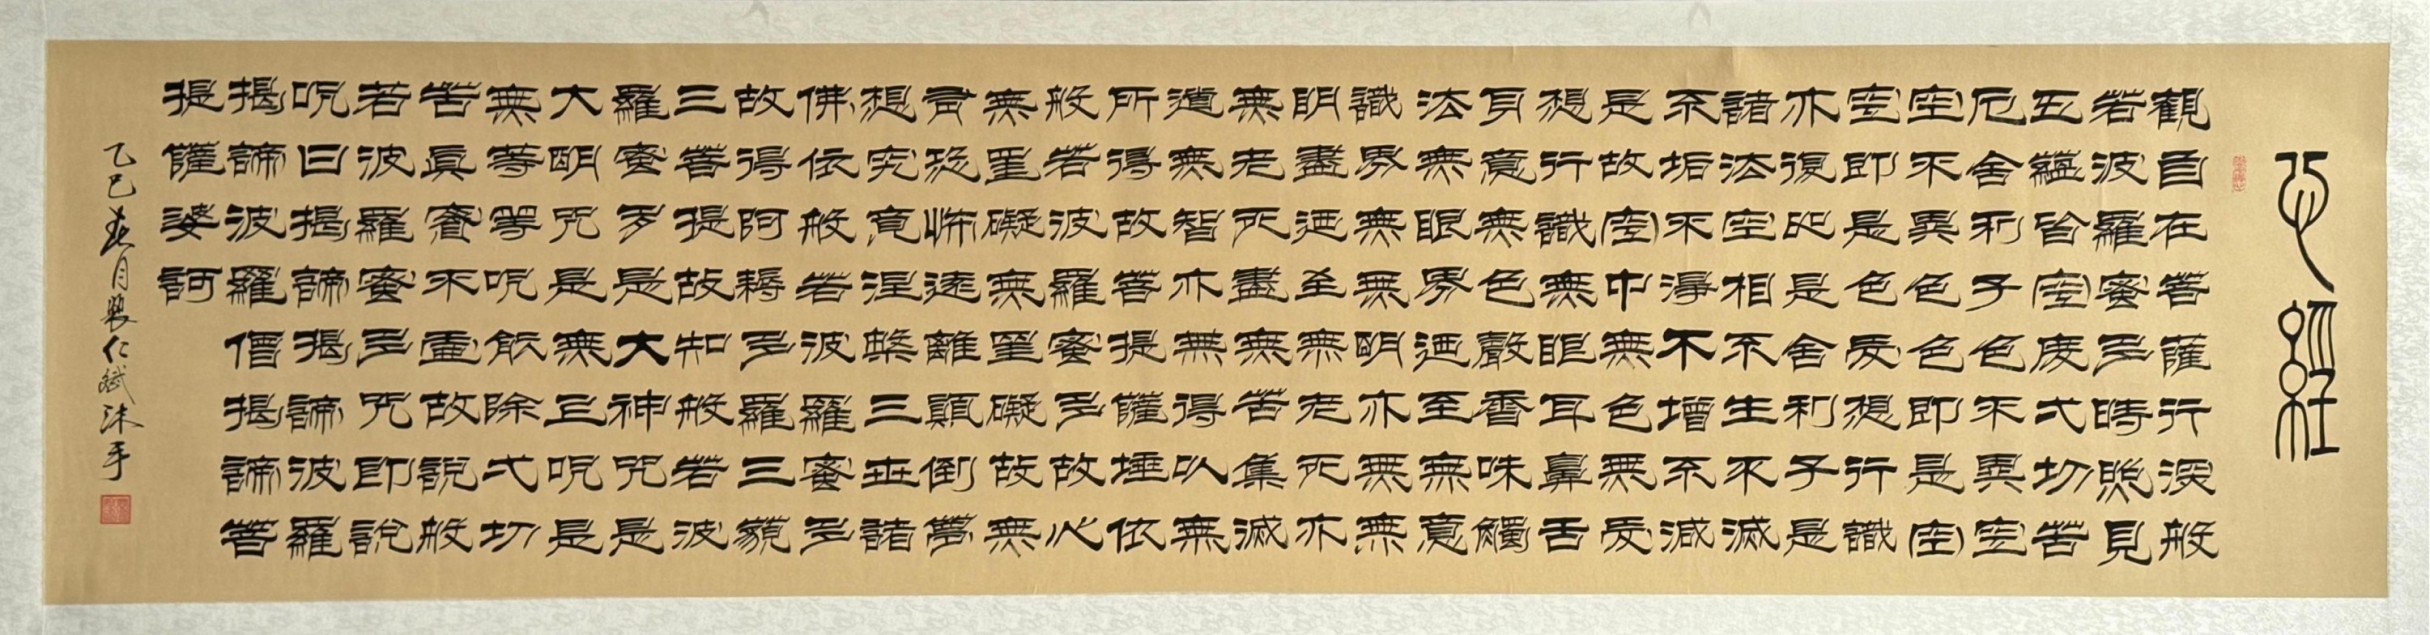 心經
觀自在菩薩行深般
若波羅蜜多時照見
五蘊皆空度弌切苦
厄舍利子色不異空
空不異色色即是空
空即是色受想行識
亦復如是舍利子是
諸法空相不生不滅
不垢不淨不增不減
是故空中無色無受
想行識無眼耳鼻舌
身意無色聲香味觸
法無眼界迺至無意
識界無無明亦無無
明盡迺至無老死亦
無老死盡無苦集滅
道無智亦無得以無
所得故菩提薩埵依
般若波羅蜜多故心
無罣礙無罣礙故無
有恐怖遠離顛倒夢
想究竟涅槃三世諸
佛依般若波羅蜜多
故得阿耨多羅三藐
三菩提故知般若波
羅蜜多是大神咒是
大明咒是無上呪是
無等等呪能除弌切
苦真實不虛故說般
若波羅蜜多咒即說
呪曰揭諦揭諦波羅
揭諦波羅僧揭諦菩
提薩婆訶
乙巳春月仁斌沐手